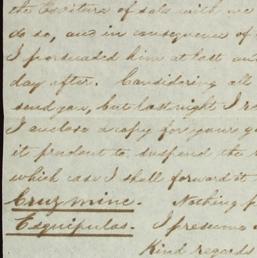 the Escritura of sale with me
do so, and in consequence of
I persuaded him at last and
day after. Considering all
send you, but last night I re
I enclose a copy for your go
it prudent to suspend the
which case I shall forward it
Cruz mine. Nothing f
Esquipulas. I presume
Kind regards